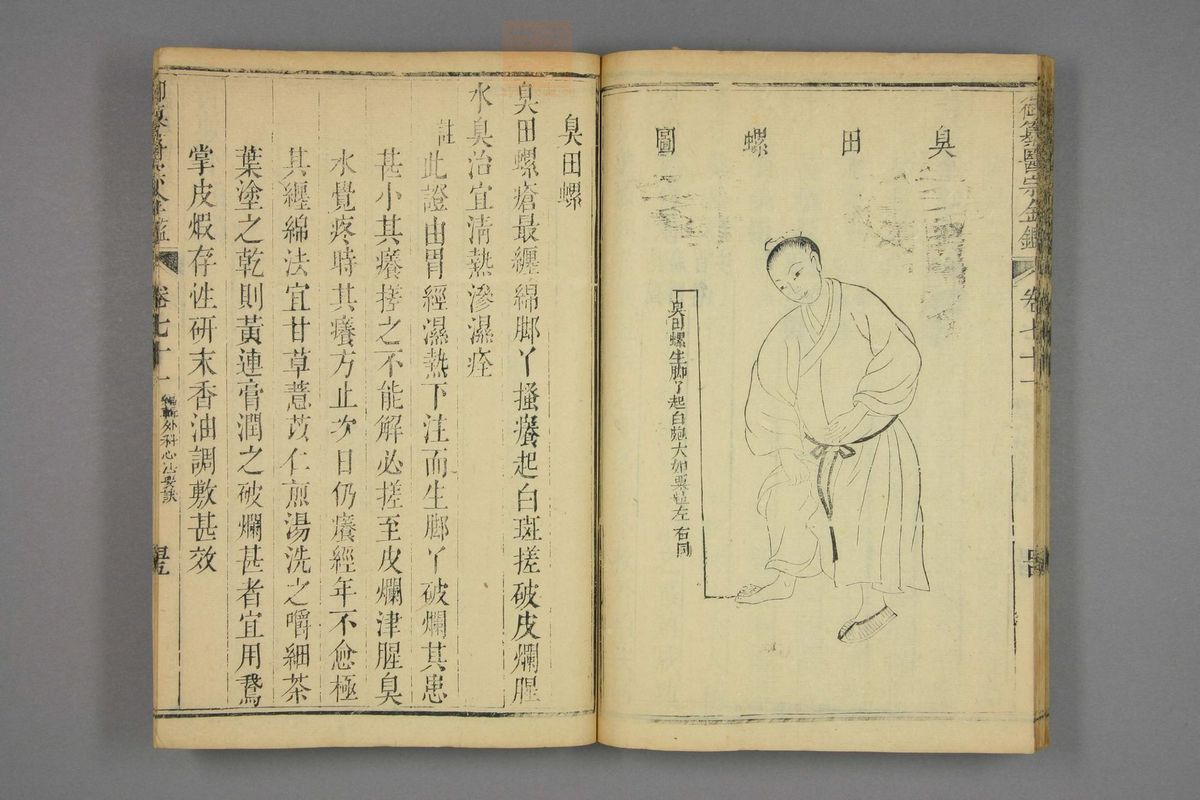 御纂醫宗金鑑
卷七十一
臭田螺圖
臭田螺生脚丫起白皰大如粟粒左右同
臭田螺
臭田螺瘡最纏綿脚丫搔癢起白斑搓破皮爛腥
水臭治宜清熱滲濕痊
註
此證由胃經濕熱下注而生脚丫破爛其患
甚小其癢搓之不能解必搓至皮爛津腥臭
水覺疼時其癢方止次日仍癢經年不愈極
其纏綿法宜甘草薏苡仁煎湯洗之嚼細茶
葉塗之乾則黃連膏潤之破爛甚者宜用鵞
掌皮煆存性研末香油調敷甚效
卷七十一
編輯外科心法要訣